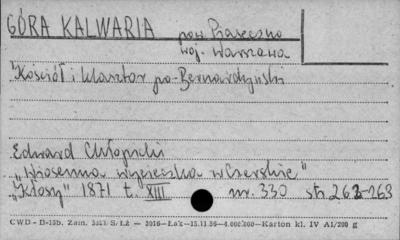 GÓRA KALWARIA pow. Piaseczno
woj. Warszawa
Kościół i klasztor po-Bernardyński
Edward Chłopicki
"Wiosenna wycieczka w Czerskie"
"Kłosy" 1871 t. XIII nr. 330 str. 262-263
CWD - Zam. S/Łż - 3016 - Łok - 15.11.56 - 4.000.000 - Karton kl. IV A1/200 g